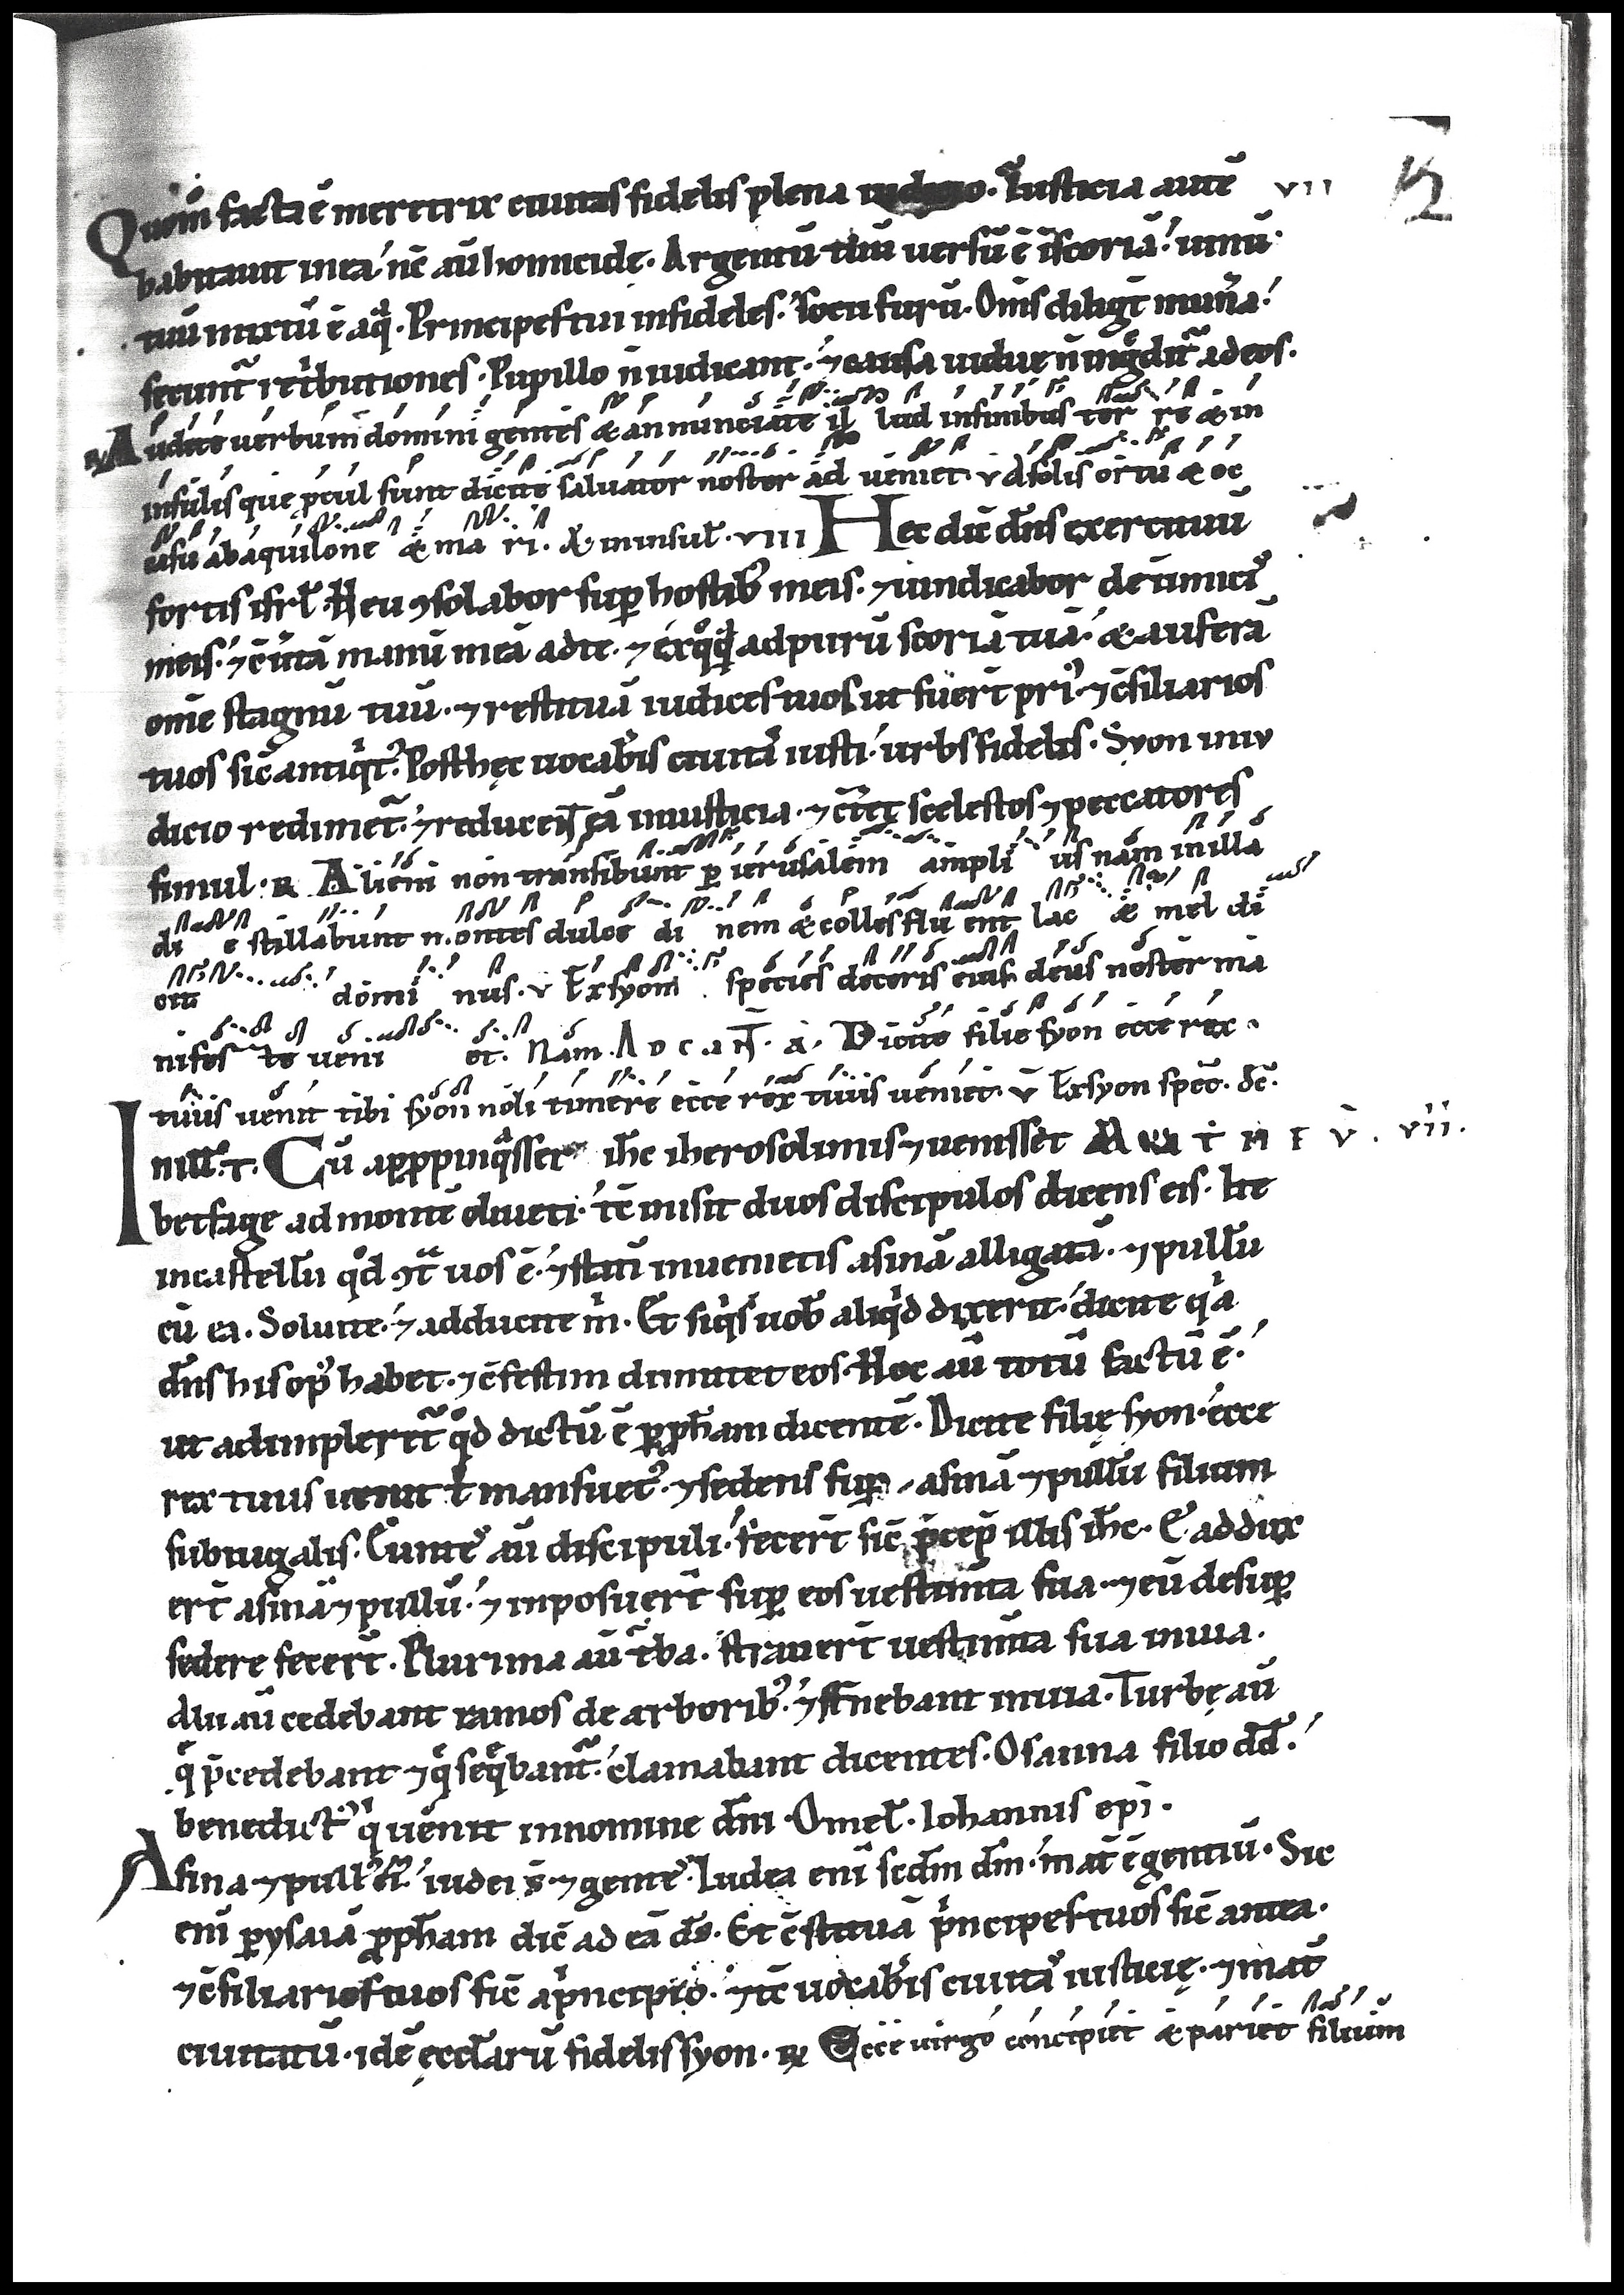 Quom̄ facta ē meretrix ciuitas fidelis plena iudicio. Iusticia autē vii
habitauit in ea. nc̄ aū homicide. Argentū tuū uersū ē ī scoriā. uinū
tuū mixtū ē aq̄. Principes tui infideles. socii furū. Om̄s diligt̄ mun̄a.
secunt̄ retͥbutiones. Pupillo n̄ iudicant. ⁊ causa uidue n̄ ingͦdit̄ ad eos.
℟ Audite uerbum domini gentes & annunciate il lud in finibus ter re & in
insulis que ꝓcul sunt dicite saluator noster ad ueniet. v A solis ortu & oc
casu ab aquilone & ma ri. & in insul̄. viii Hec dic̄ dn̄s exercituū
fortis isrl̄. Heu ꝯsolabor suꝑ hostibꝰ meis. ⁊ uindicabor de inimicꝰ
meis. ⁊ ꝯuͥtā manū meā ad te. ⁊ excoq̄ ad purū scoriā tuā. & auferā
om̄e stagnū tuū. ⁊ restituā iudices tuos ut fuert̄ priꝰ. ⁊ c̄siliarios
tuos sic̄ antiqͥtꝰ. Post hęc uocabͥis ciuitaͨ iusti. urbs fidelis. Syon in iu
dicio redimet̄. ⁊ reducent̄ eā in iusticia. ⁊ c̄teret scelestos ⁊ peccatores
simul. ℟ Alieni non transibunt ꝑ ierusalem ampli us nam in illa
di e stillabunt montes dulce di nem & colles flu ent lac & mel di
cit domi nus. v Ex syom species decoris eius deus noster ma
nifes te ueni et. Nam. A D C A N̄. a. Dicite filie syon ecce rex
tuus uenit tibi syon noli timere ecce rex tuus ueniet. v̄ Ex syon spec̄. dc̄.
In ill̄. t̄. Cū apꝓpinqͣsset ih̄c iherosolimis ⁊ uenisset M A T H E V. vii.
betfage ad montē oliueti. tc̄ misit duos discipulos dicens eis. Ite
in castellū qͦd ꝯtͣ uos ē. ⁊ statī inuenietis asinā alligatā. ⁊ pullū
cū ea. Soluite. ⁊ adducite m̄. Et siqͥs uob̄ aliqͥd dixerit. dicite qͥa
dn̄s his opꝰ habet. ⁊ c̄festim dimittet eos. Hoc aū totū factū ē.
ut adimpleret̄ qͦd dictū ē ꝑ ꝓph̄am dicentē. Dicite filię syon. ecce
rex tuus uenit tͥ mansuetꝰ. ⁊ sedens suꝑ asinā ⁊ pullū filium
subiugalis. Eunteͨ aū discipuli. fecert̄ sic̄ p̄cep̄ illis ih̄c. Et addux
ert̄ asinā ⁊ pullū. ⁊ inposuert̄ suꝑ eos uestim̄ta sua. ⁊ eū desuꝑ
sedere fecert̄. Plurima aū tͬba. strauert̄ uestim̄ta sua in uia.
Alii aū cedebant ramos de arboribꝰ. ⁊ st̄nebant in uia. Turbę aū
qͤ p̄cedebant ⁊ qͤ seqͤbant̄. clamabant dicentes. Osanna filio dd̄.
benedictꝰ qͥ uenit in nomine dn̄i. Omel̄. Iohannis epī.
Asina ⁊ pullꝰ ei. iudei s̄ ⁊ genteͨ. Iudea enī scd̄m dm̄. mat̄ ē gentiū. Sic
enī ꝑ ysaiā ꝓph̄am dic̄ ad eā ds̄. Et c̄stituā pͥncipes tuos sic̄ antea.
⁊ c̄siliarios tuos sic̄ a pͥncipio. ⁊ tc̄ uocabͥis ciuitaͨ iusticię. ⁊ mat̄
ciuitatū. idē ęccl̄arū fidelis syon. ℟ Ecce uirgo concipiet & pariet filium